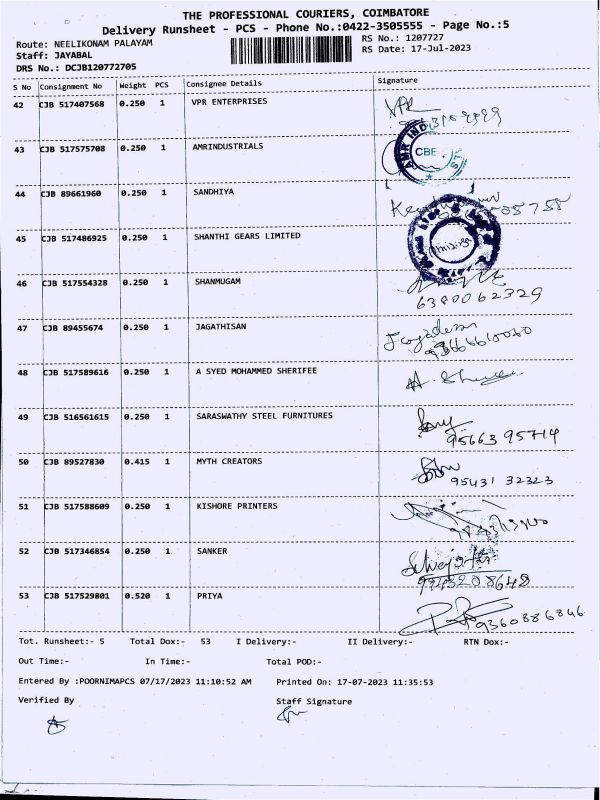 THE PROFESSIONAL COURIERS, COIMBATORE
Delivery Runsheet - PCS - Phone No.:0422-3505555 - Page No.:5
Route: NEELIKONAM PALAYAM RS No.: 1207727
Staff: JAYABAL RS Date: 17-Jul-2023
DRS No.: DCJB120772705
S No Consignment No Weight PCS Consignee Details Signature
42 CJB 517407568 0.250 1 VPR ENTERPRISES VPR
43 CJB 517575708 0.250 1 AMRINDUSTRIALS AMR IND CBE
44 CJB 89661960 0.250 1 SANDHIYA
45 CJB 517486925 0.250 1 SHANTHI GEARS LIMITED
46 CJB 517554328 0.250 1 SHANMUGAM
6380062329
47 CJB 89455674 0.250 1 JAGATHISAN
48 CJB 517589616 0.250 1 A SYED MOHAMMED SHERIFEE
49 CJB 516561615 0.250 1 SARASWATHY STEEL FURNITURES
95663 95714
50 CJB 89527830 0.415 1 MYTH CREATORS
95431 32323
51 CJB 517588609 0.250 1 KISHORE PRINTERS
52 CJB 517346854 0.250 1 SANKER
53 CJB 517529801 0.520 1 PRIYA
9360886846
Tot. Runsheet:- 5 Total Dox:- 53 I Delivery:- II Delivery:- RTN Dox:-
Out Time:- In Time:- Total POD:-
Entered By :POORNIMAPCS 07/17/2023 11:10:52 AM Printed On: 17-07-2023 11:35:53
Verified By Staff Signature